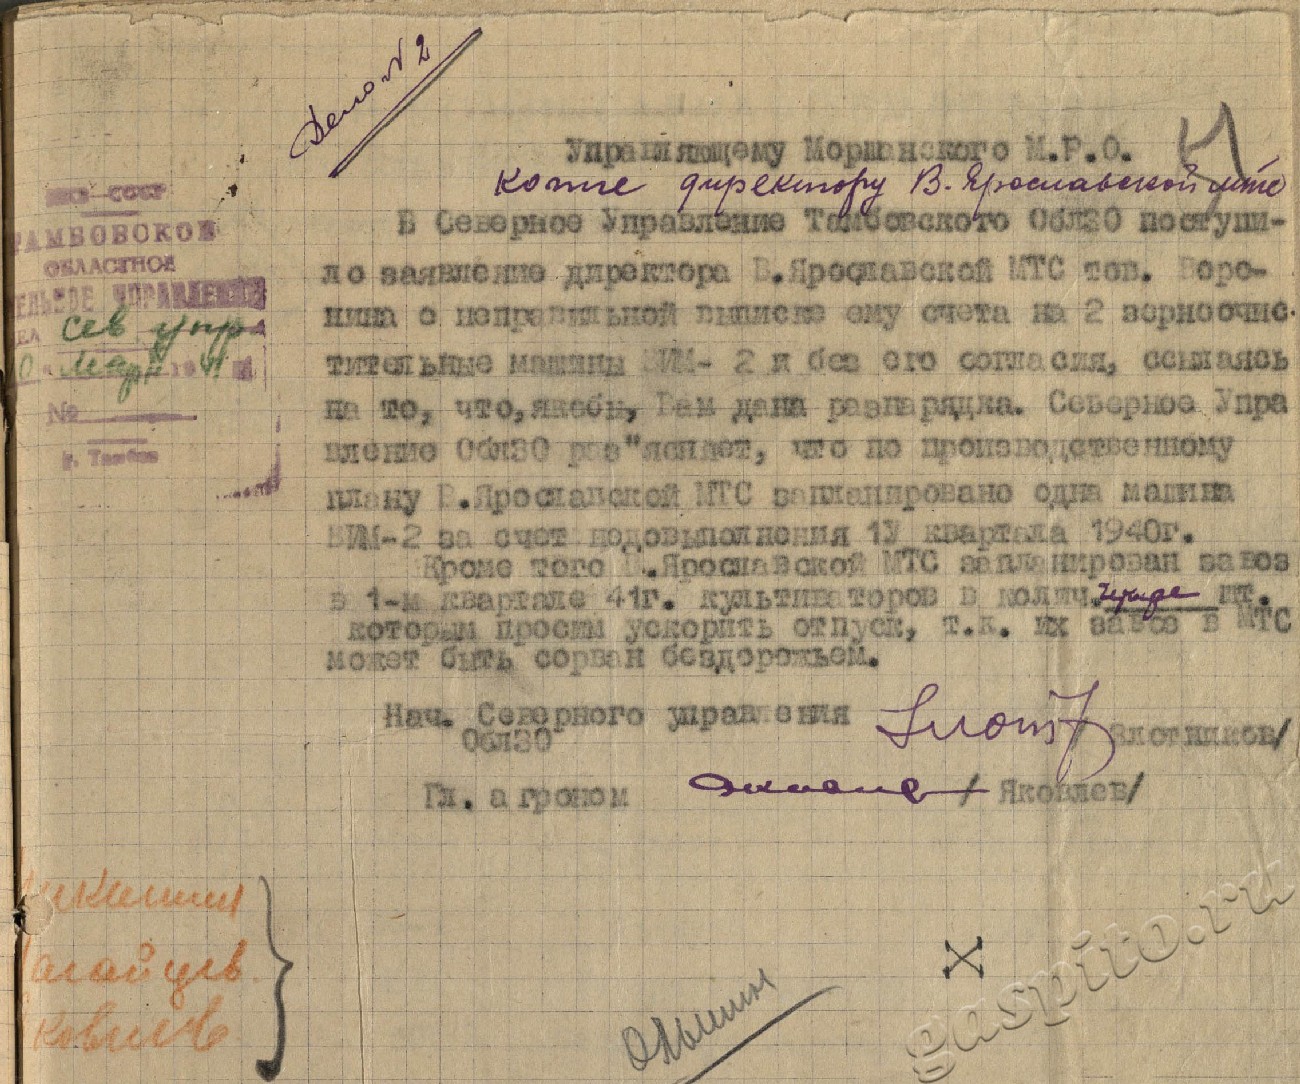 Дело N 2
Управляющему Моршанского М.Р.О.
копие директору В.Ярославской мтс
В Северное Управление Тамбовского ОблЗО поступи-
ло заявление директора В.Ярославской МТС тов. Воро-
нина о неправильной выписке ему счета на 2 зерноочис-
тительные машины ВИМ- 2 и без его согласия, ссылаясь
на то, что,якобы, Вам дана разнарядка. Северное Упра
вление ОблЗО раз"ясняет, что по производственному
плану В.Ярославской МТС запланировано одна машина
ВИМ-2 за счет недовыполнения 1У квартала 1940г.
Кроме того В.Ярославской МТС запланирован завоз
в 1-м квартале 41г. культиваторов в колич. шт.
которым просим ускорить отпуск, т.к. их завоз в МТС
может быть сорван бездорожьем.
Нач. Северного управления
ОблЗО
Злотников/
Гл. агроном / Яковлев/
СССР
ТАМБОВСКОЕ
ОБЛАСТНОЕ
ЗЕМЕЛЬНОЕ УПРАВЛЕНИЕ
сев упр
март
№
г. Тамбов
gaspito.ru